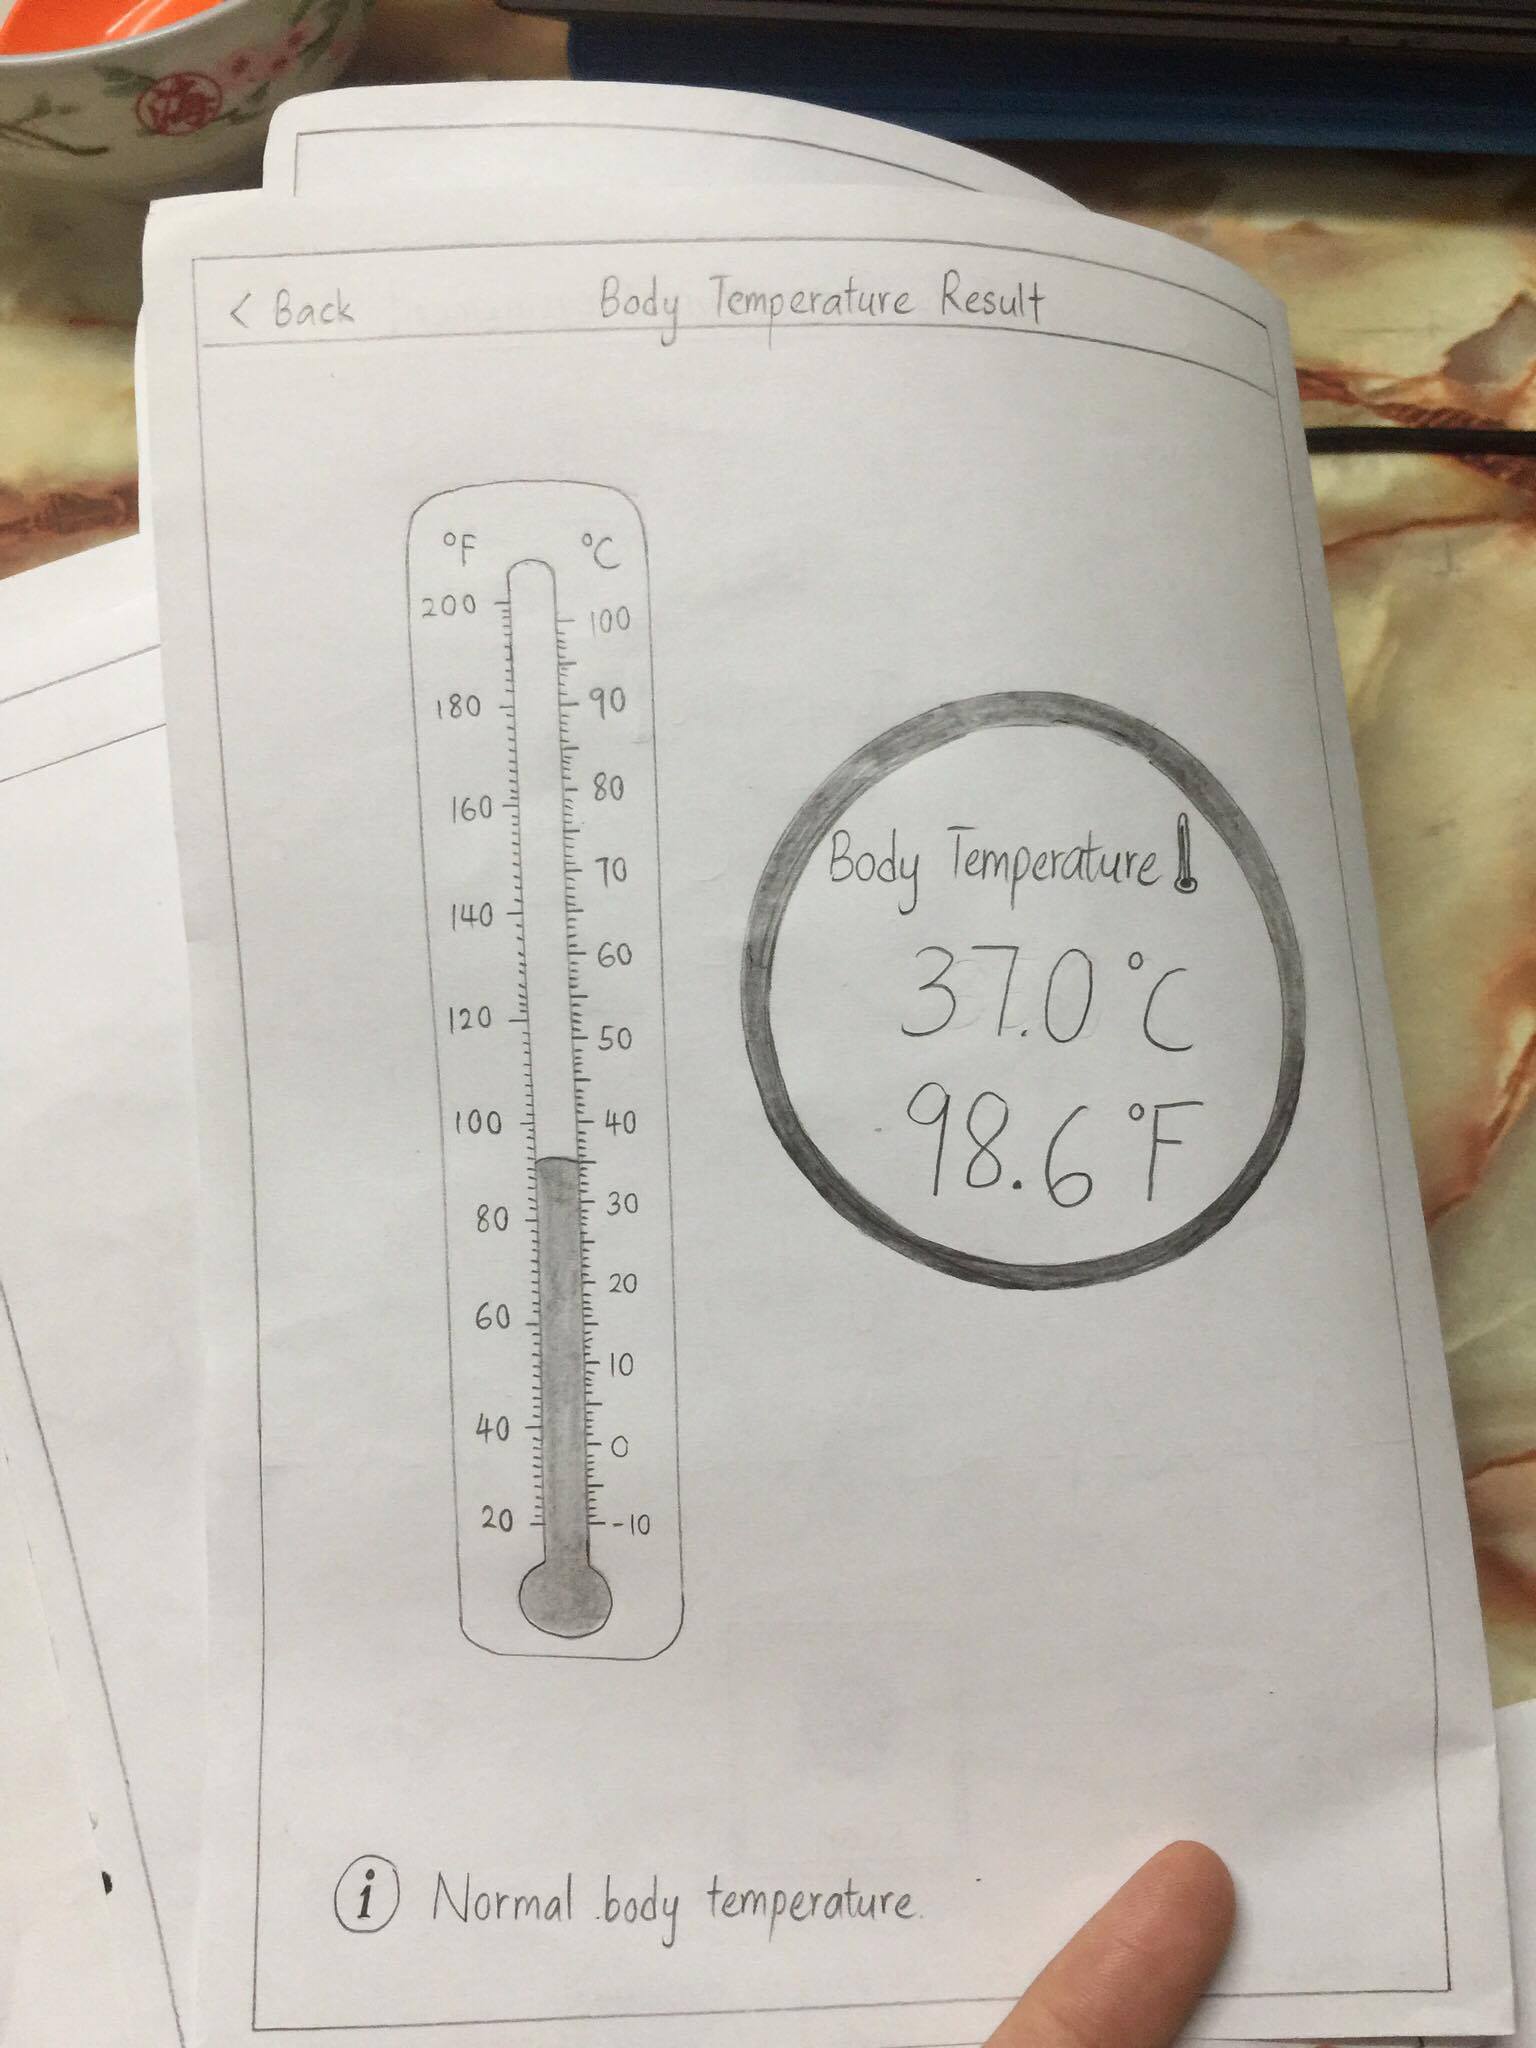 < Back
Body Temperature Result
°F °C
200
100
180
90
160
80
70
140
60
120
50
100
40
80
30
20
60
10
40
0
20
-10
Body Temperature
37.0 °C
98.6 °F
i Normal body temperature.